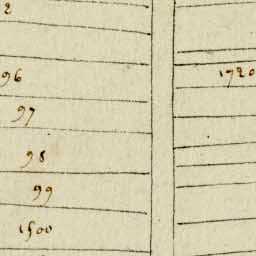 2
96
97
98
99
1500
1720